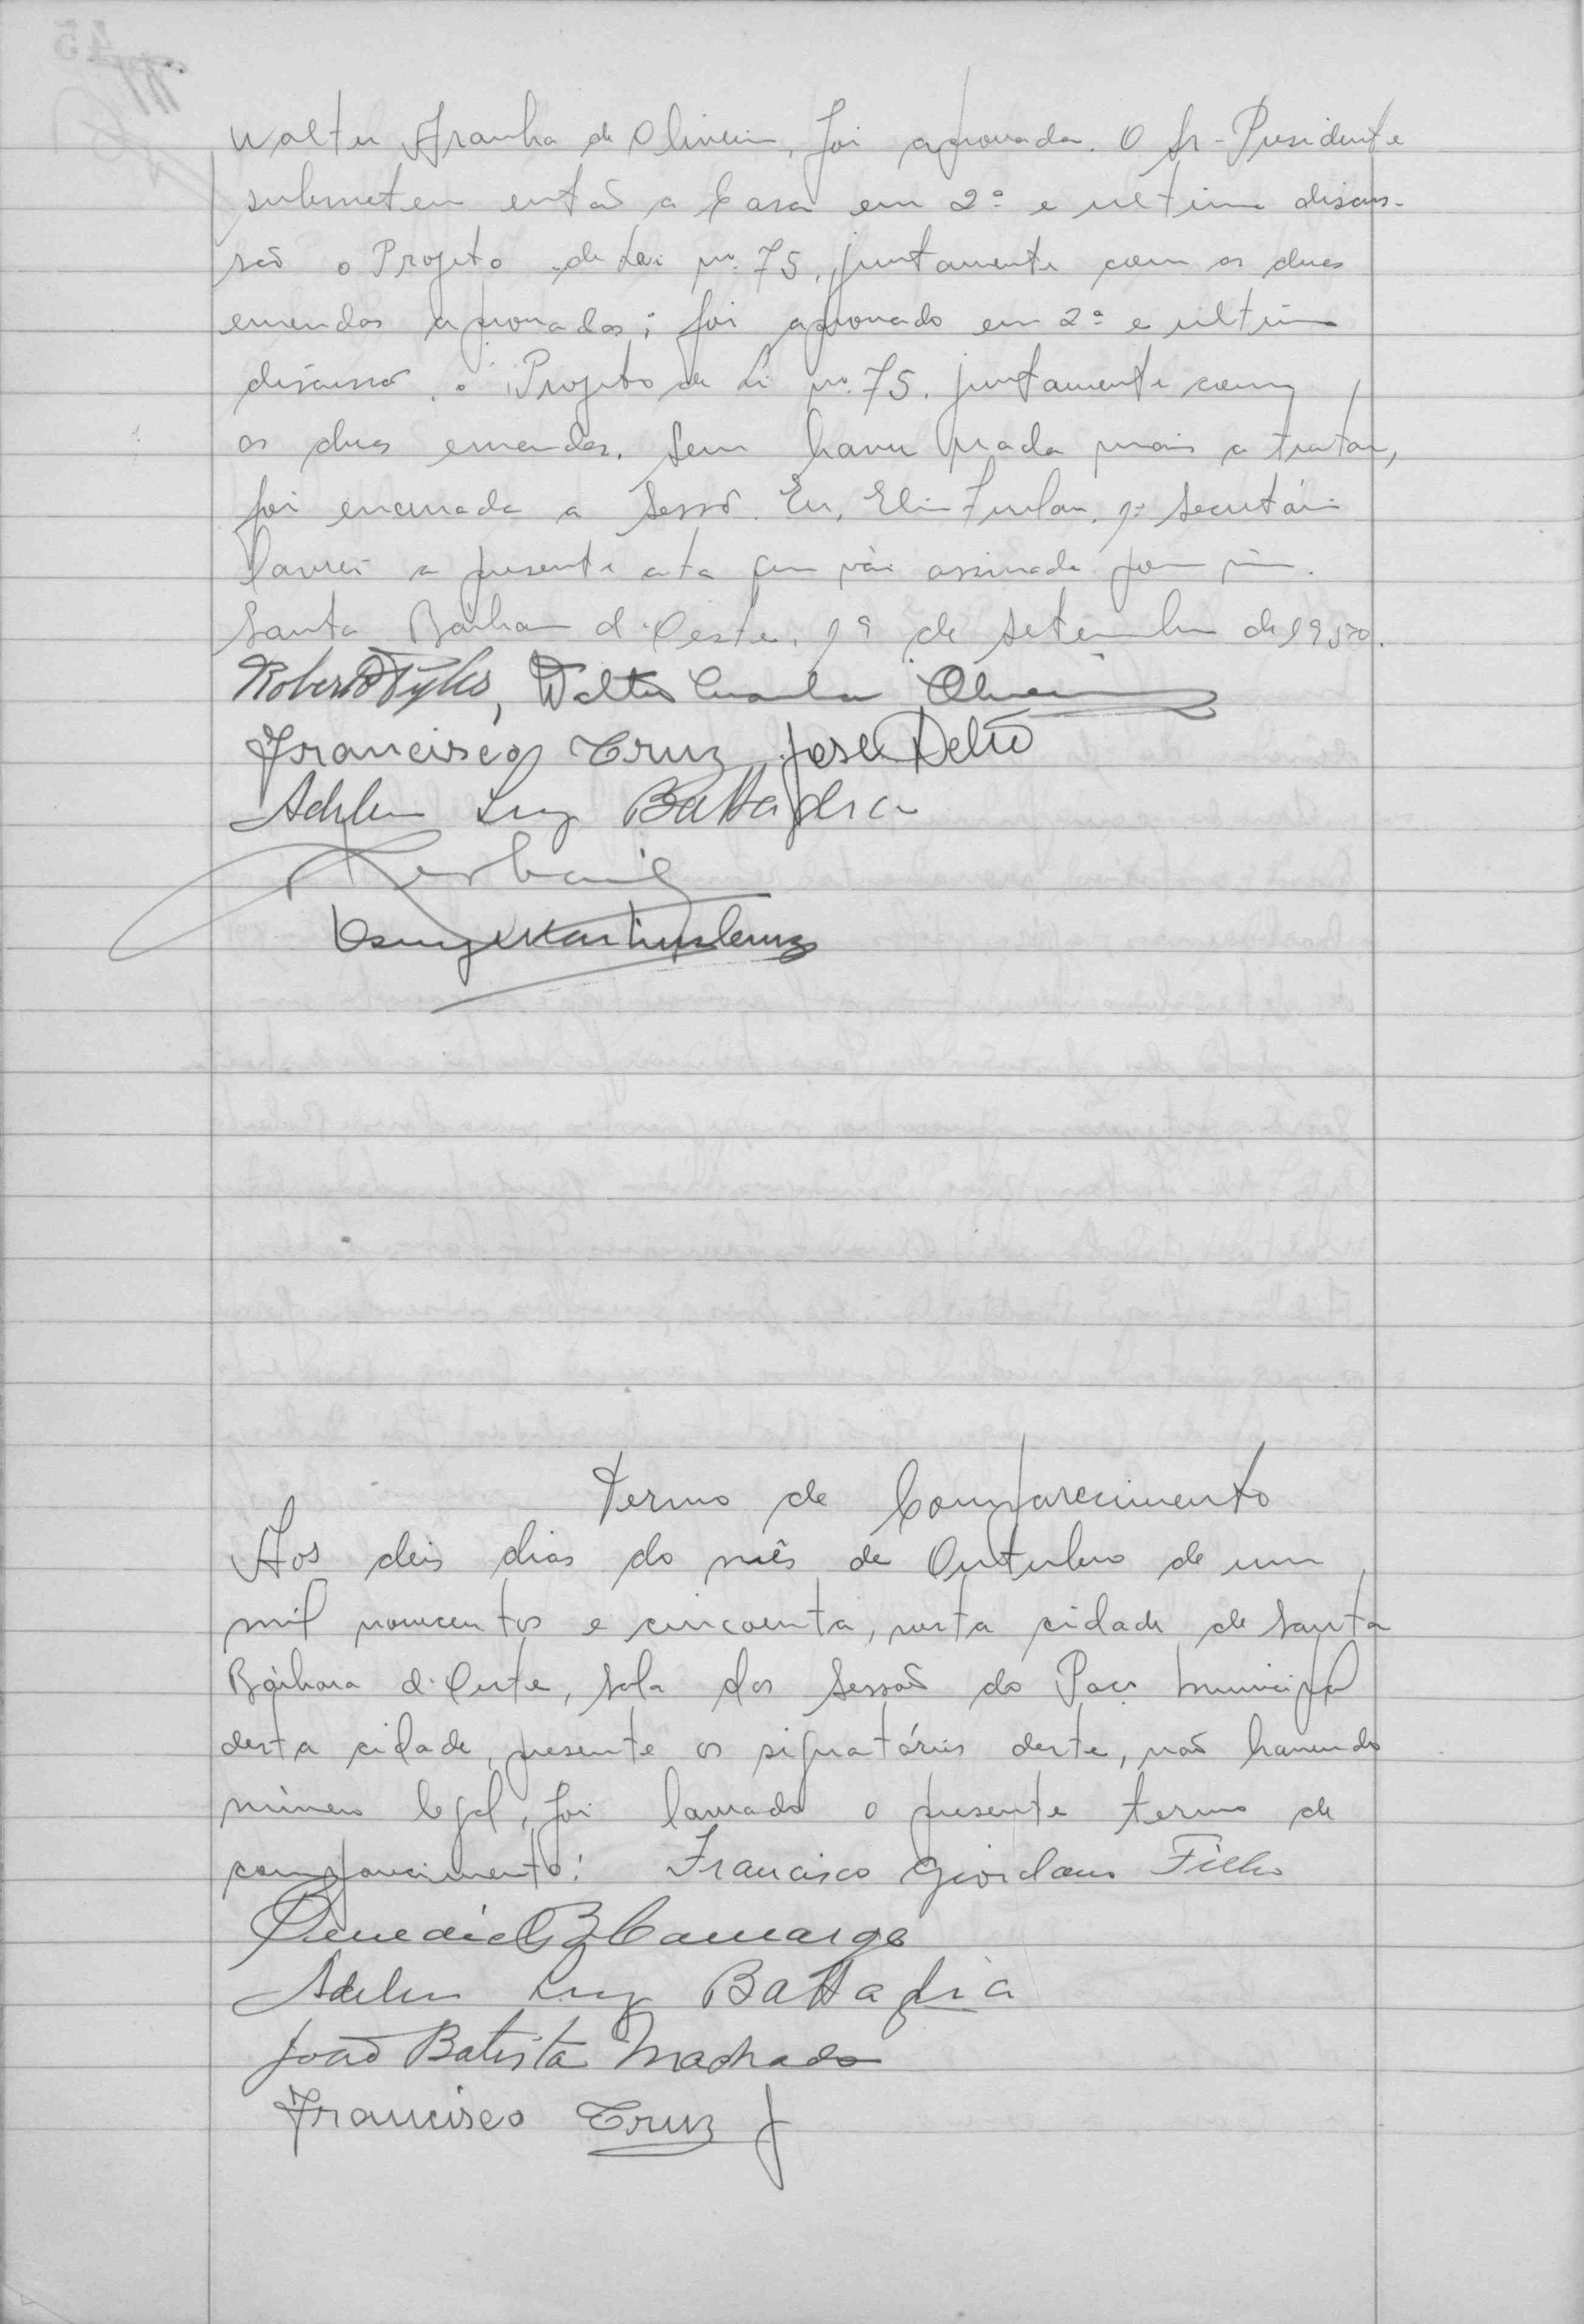 Walter Aranha de Oliveira, foi aprovada. O Sr. Presidente
submeteu então a Casa em 2ª e ultima discus-
são o Projeto de Lei nº 75, juntamente com as duas
emendas aprovadas; foi aprovado em 2ª e ultima
discussão o Projeto de Lei nº 75. juntamente com
as duas emendas. Sem haver nada mais a tratar,
foi encerrada a Sessão. Eu, 1º Secretário
lavrei a presente ata que vai assinada por mim.
Santa Bárbara d'Oeste, de Setembro de 1950.
Walter Aranha Oliveira
Francisco Cruz José
Luiz Battaglia
Martins Cruz
Termo de Comparecimento
Aos dois dias do mês de Outubro de um
mil novecentos e cincoenta, nesta cidade de Santa
Bárbara d'Oeste, sala das Sessão do Paço Municipal
desta cidade, presente os signatários deste, não havendo
número legal, foi lavrado o presente termo de
comparecimento: Francisco Giordano Filho
Camargo
Luiz Battaglia
João Batista Machado
Francisco Cruz